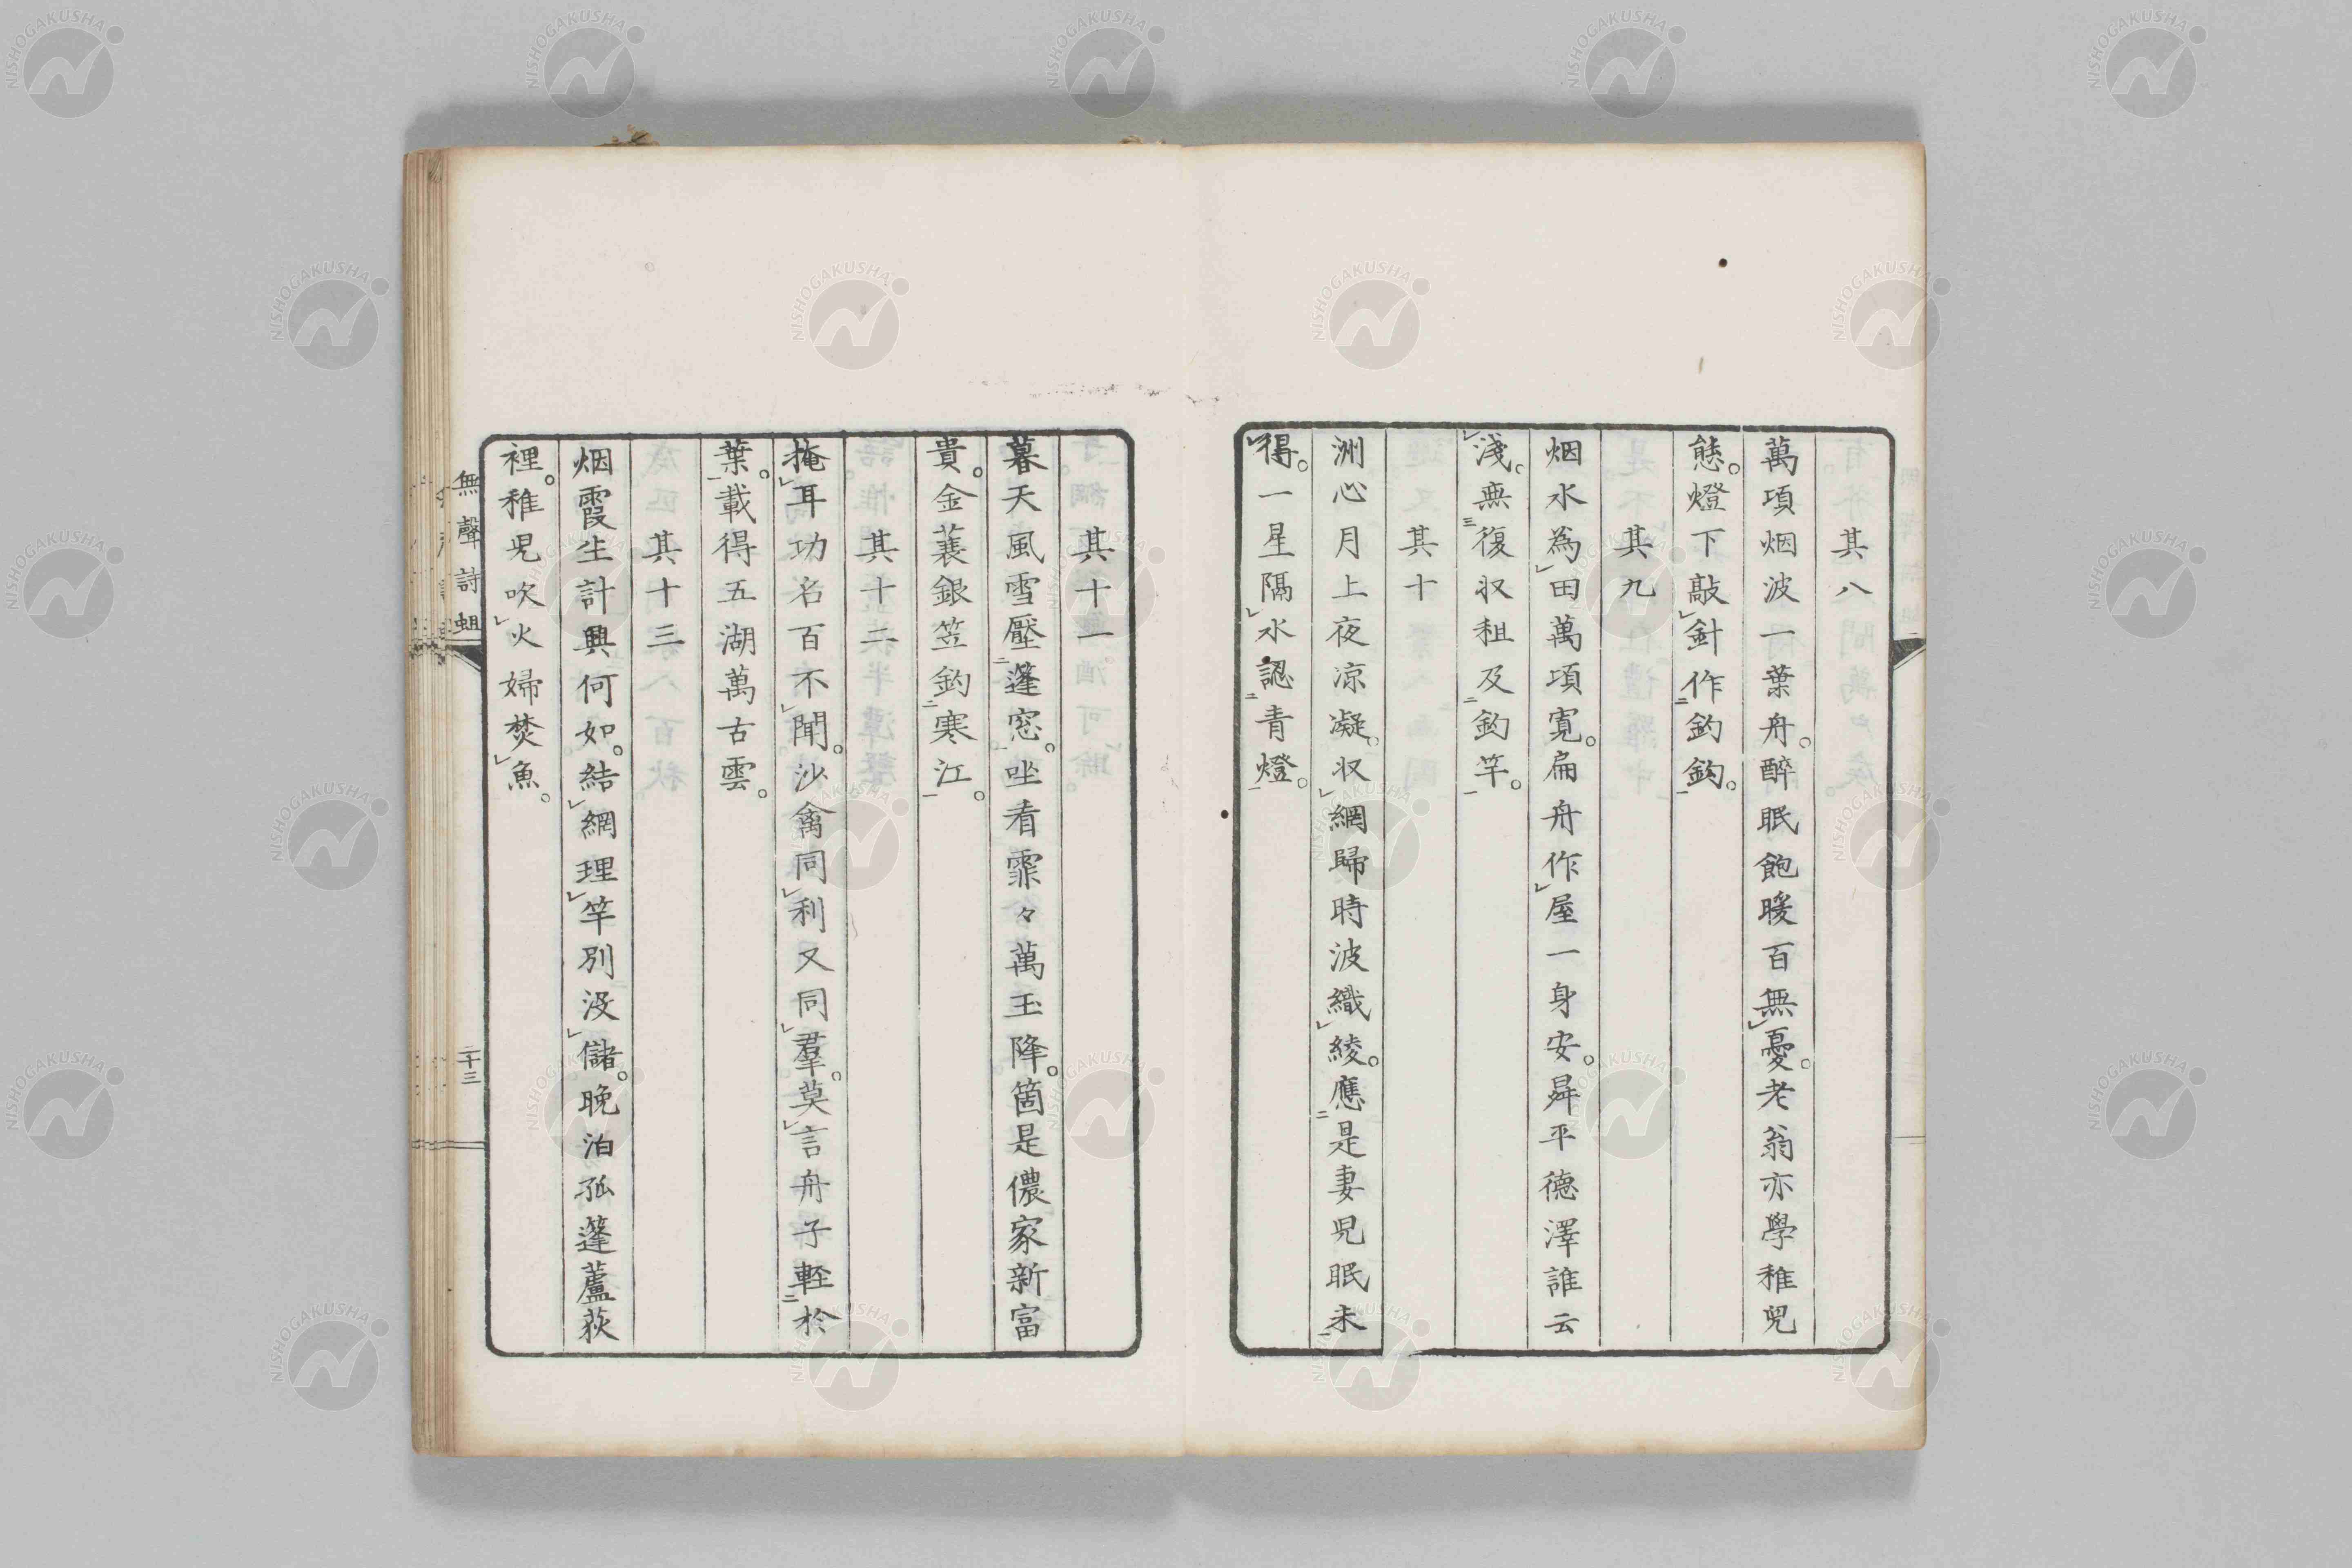 其八
萬項烟波一葉舟。醉眠飽暖百無憂。老翁亦學稚兒
態。燈下敲針作釣鈎。
其九
烟水為田萬項寬。扁舟作屋一身安。昇平德澤誰云
淺。無復収租及釣竿。
其十
洲心月上夜凉凝。収網歸時波織綾。應是妻児眠未
得。一星隔水認青燈。
其十一
暮天風雪壓蓬窓。坐看霏々萬玉降。箇是儂家新富
貴。金蓑銀笠釣寒江。
其十二
掩耳功名百不聞。沙禽同利又同羣。莫言舟子輕於
葉。載得五湖萬古雲。
其十三
烟霞生計興何如。結網理竿別沒儲。晚泊孤蓬蘆荻
裡。稚児吹火婦焚魚。
無聲詩蛆
二十三
NISHOGAKUSHA